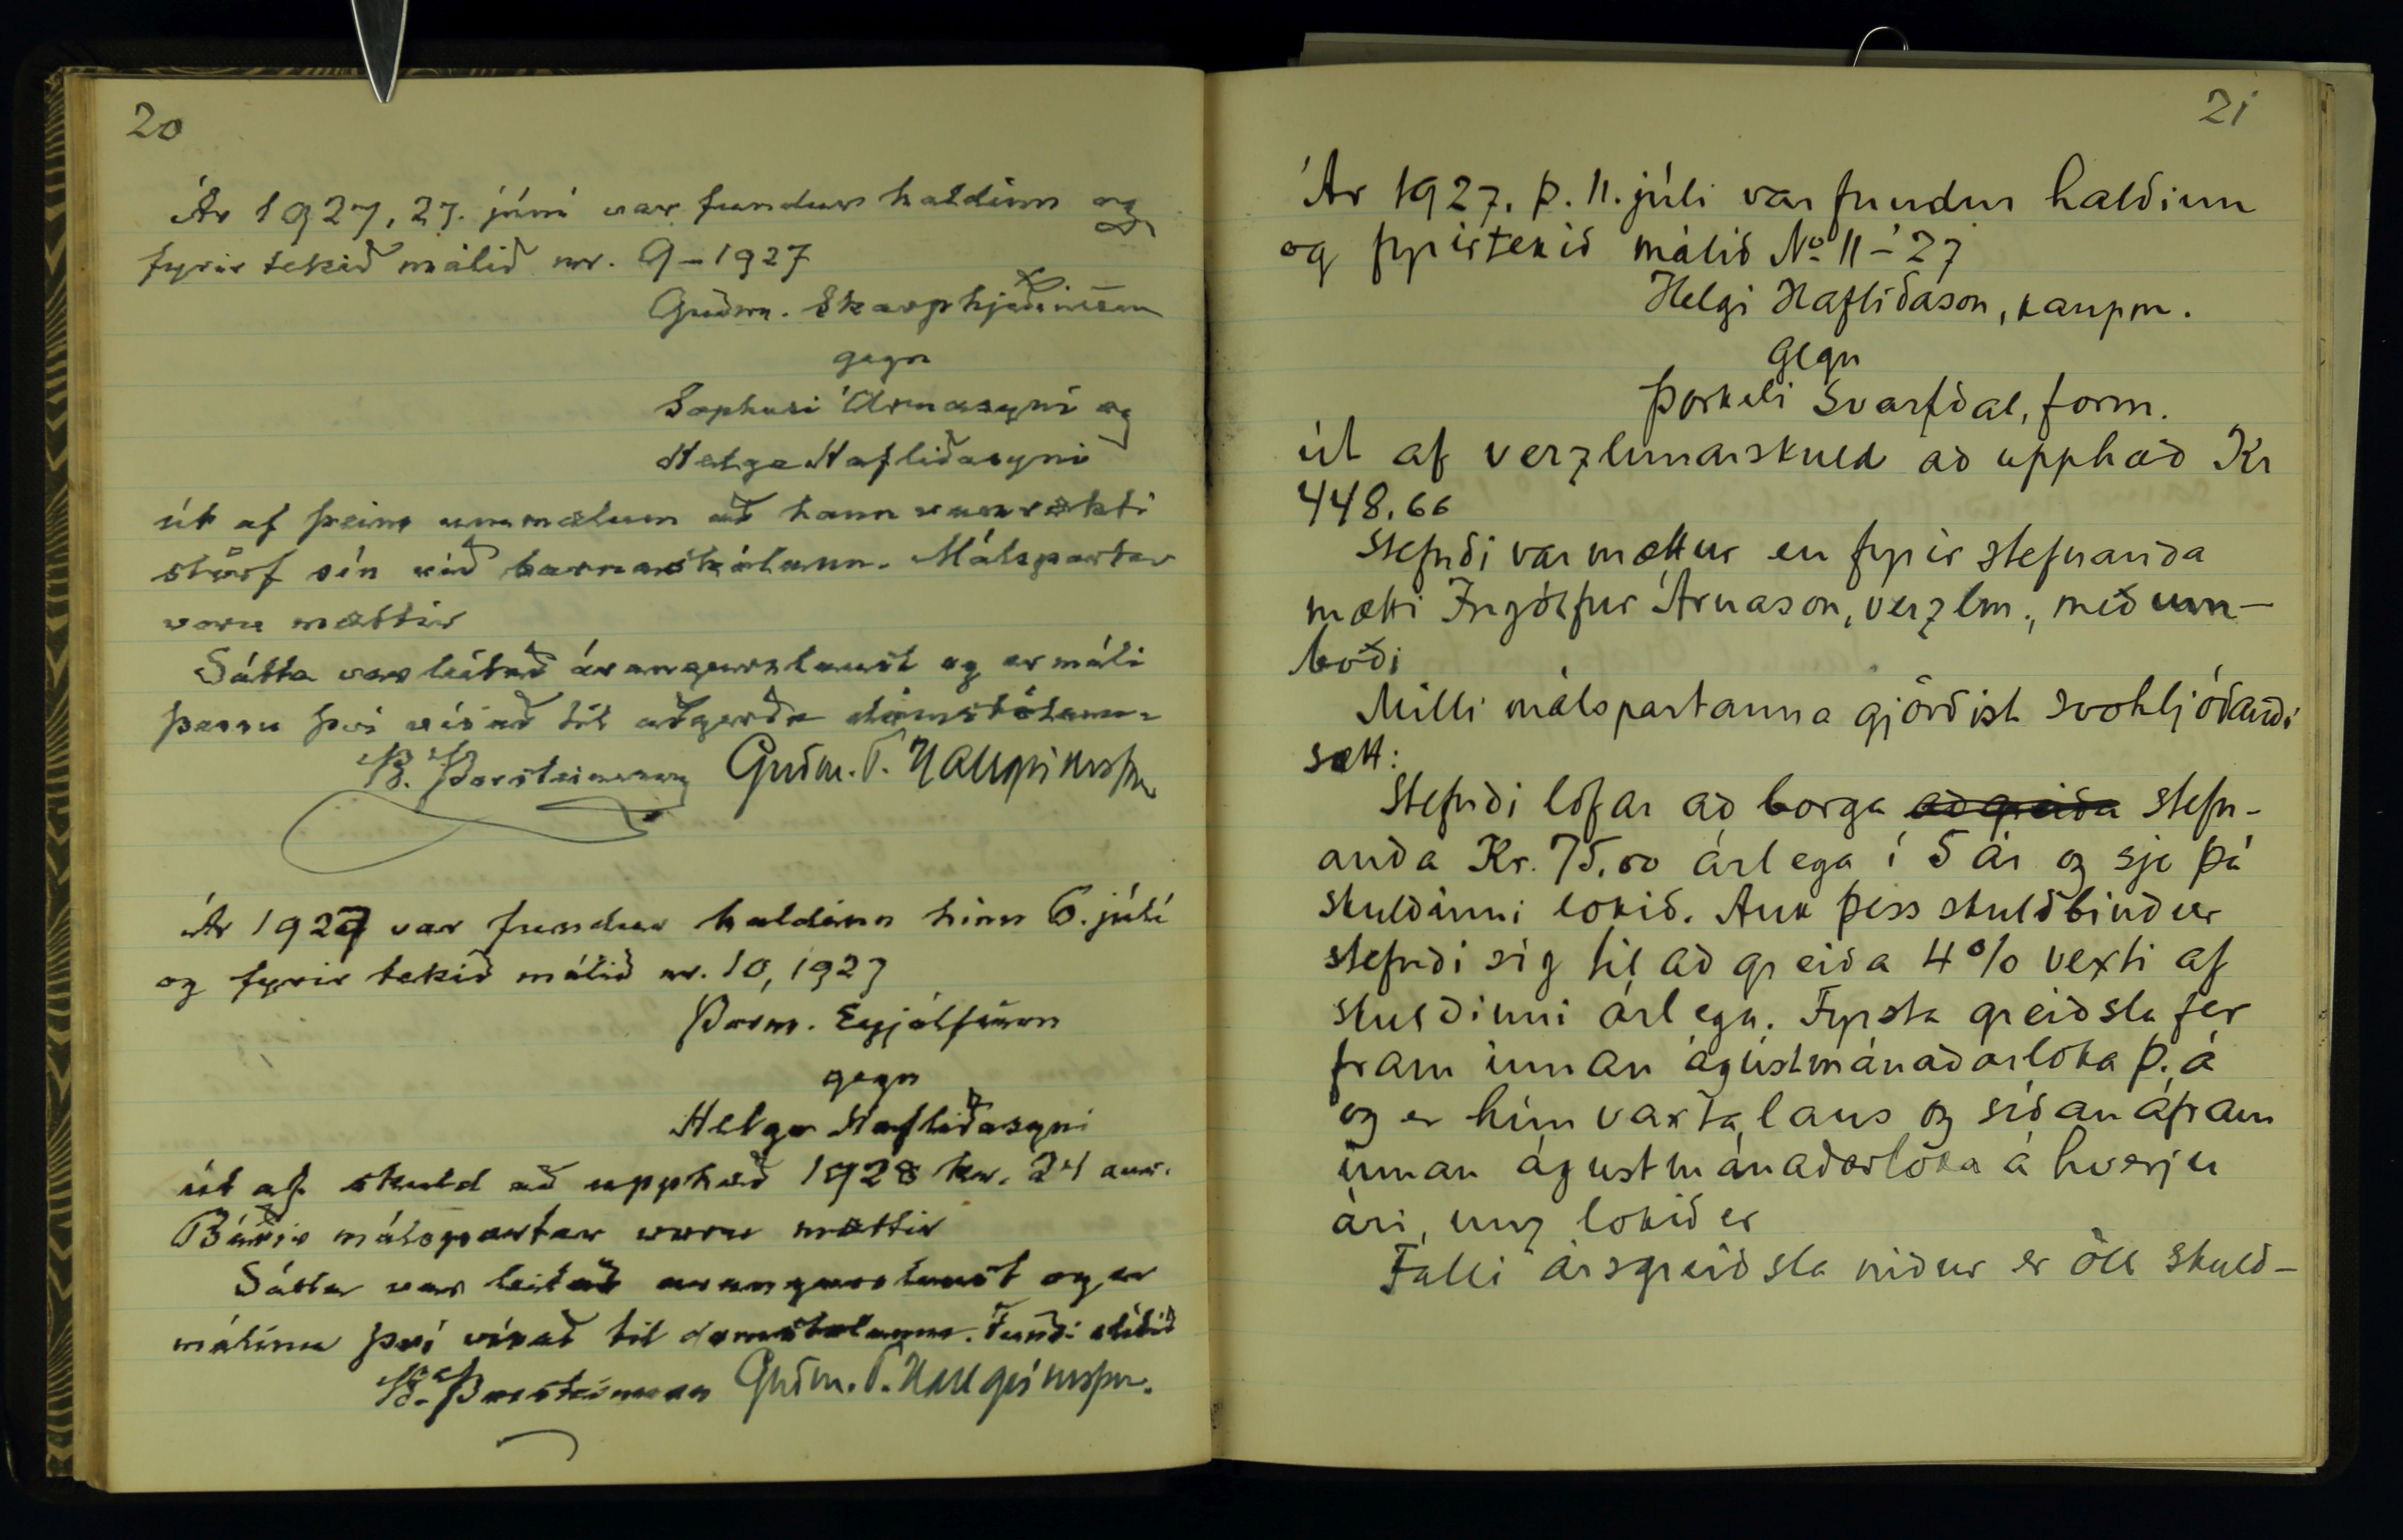 20
Ár 1927, 27. júní var fundur haldinn og
fyrir tekið málið nr. 9-1927
Guðm. Skarphjeðinsson
gegn
Sophusi Árnasyni og
Helga Hafliðasyni
út af þeim ummælum að hann vanrækti
störf sín við barnaskólann. Málspartar
voru mættir
Sátta var leitað árangurslaust og er máli
þessu því vísað til aðgerða dómstólanna
B. Þorsteinsson Guðm. T. Hallgrímsson
Ár 1927 var fundur haldinn hinn 6. júlí
og fyrir tekið málið nr. 10, 1927
Þorm. Eyjólfsson
gegn
Helga Hafliðasyni
út af skuld að upphæð 1928 kr. 24 aur.
Báðir málspartar voru mættir
Sátta var leitað árangurslaust og er
málinu því vísað til domstolanna. Fundi slitið
B. Þorsteinsson Guðm. T. Hallgrímsson.
21
Ár 1927. þ. 11. júli var fundur haldinn
og fyrirtekið málið No 11-'27
Helgi Hafliðason, kaupm.
Gegn
Þorkeli Svarfdal, form.
út af verzlunarskuld að upphæð Kr
448.66
Stefndi var mættur en fyrir stefnanda
mætti Ingólfur Árnason, verzlm., með um-
boði
Milli málspartanna gjörðist svohljóðandi
sætt:
Stefndi lofar að borga að greiða stefn-
anda Kr. 75.00 árlega í 5 ár og sje þá
skuldinni lokið. Auk þess skuldbindur
stefndi sig til að greiða 4% vexti af
skuldinni árlega. Fyrsta greiðsla fer
fram innan ágústmánaðarloka þ. á
og er hún vaxtalaus og síðan áfram
innan ágústmánaðarloka á hverju
ári, unz lokið er
Falli ársgreiðsla niður er öll skuld-